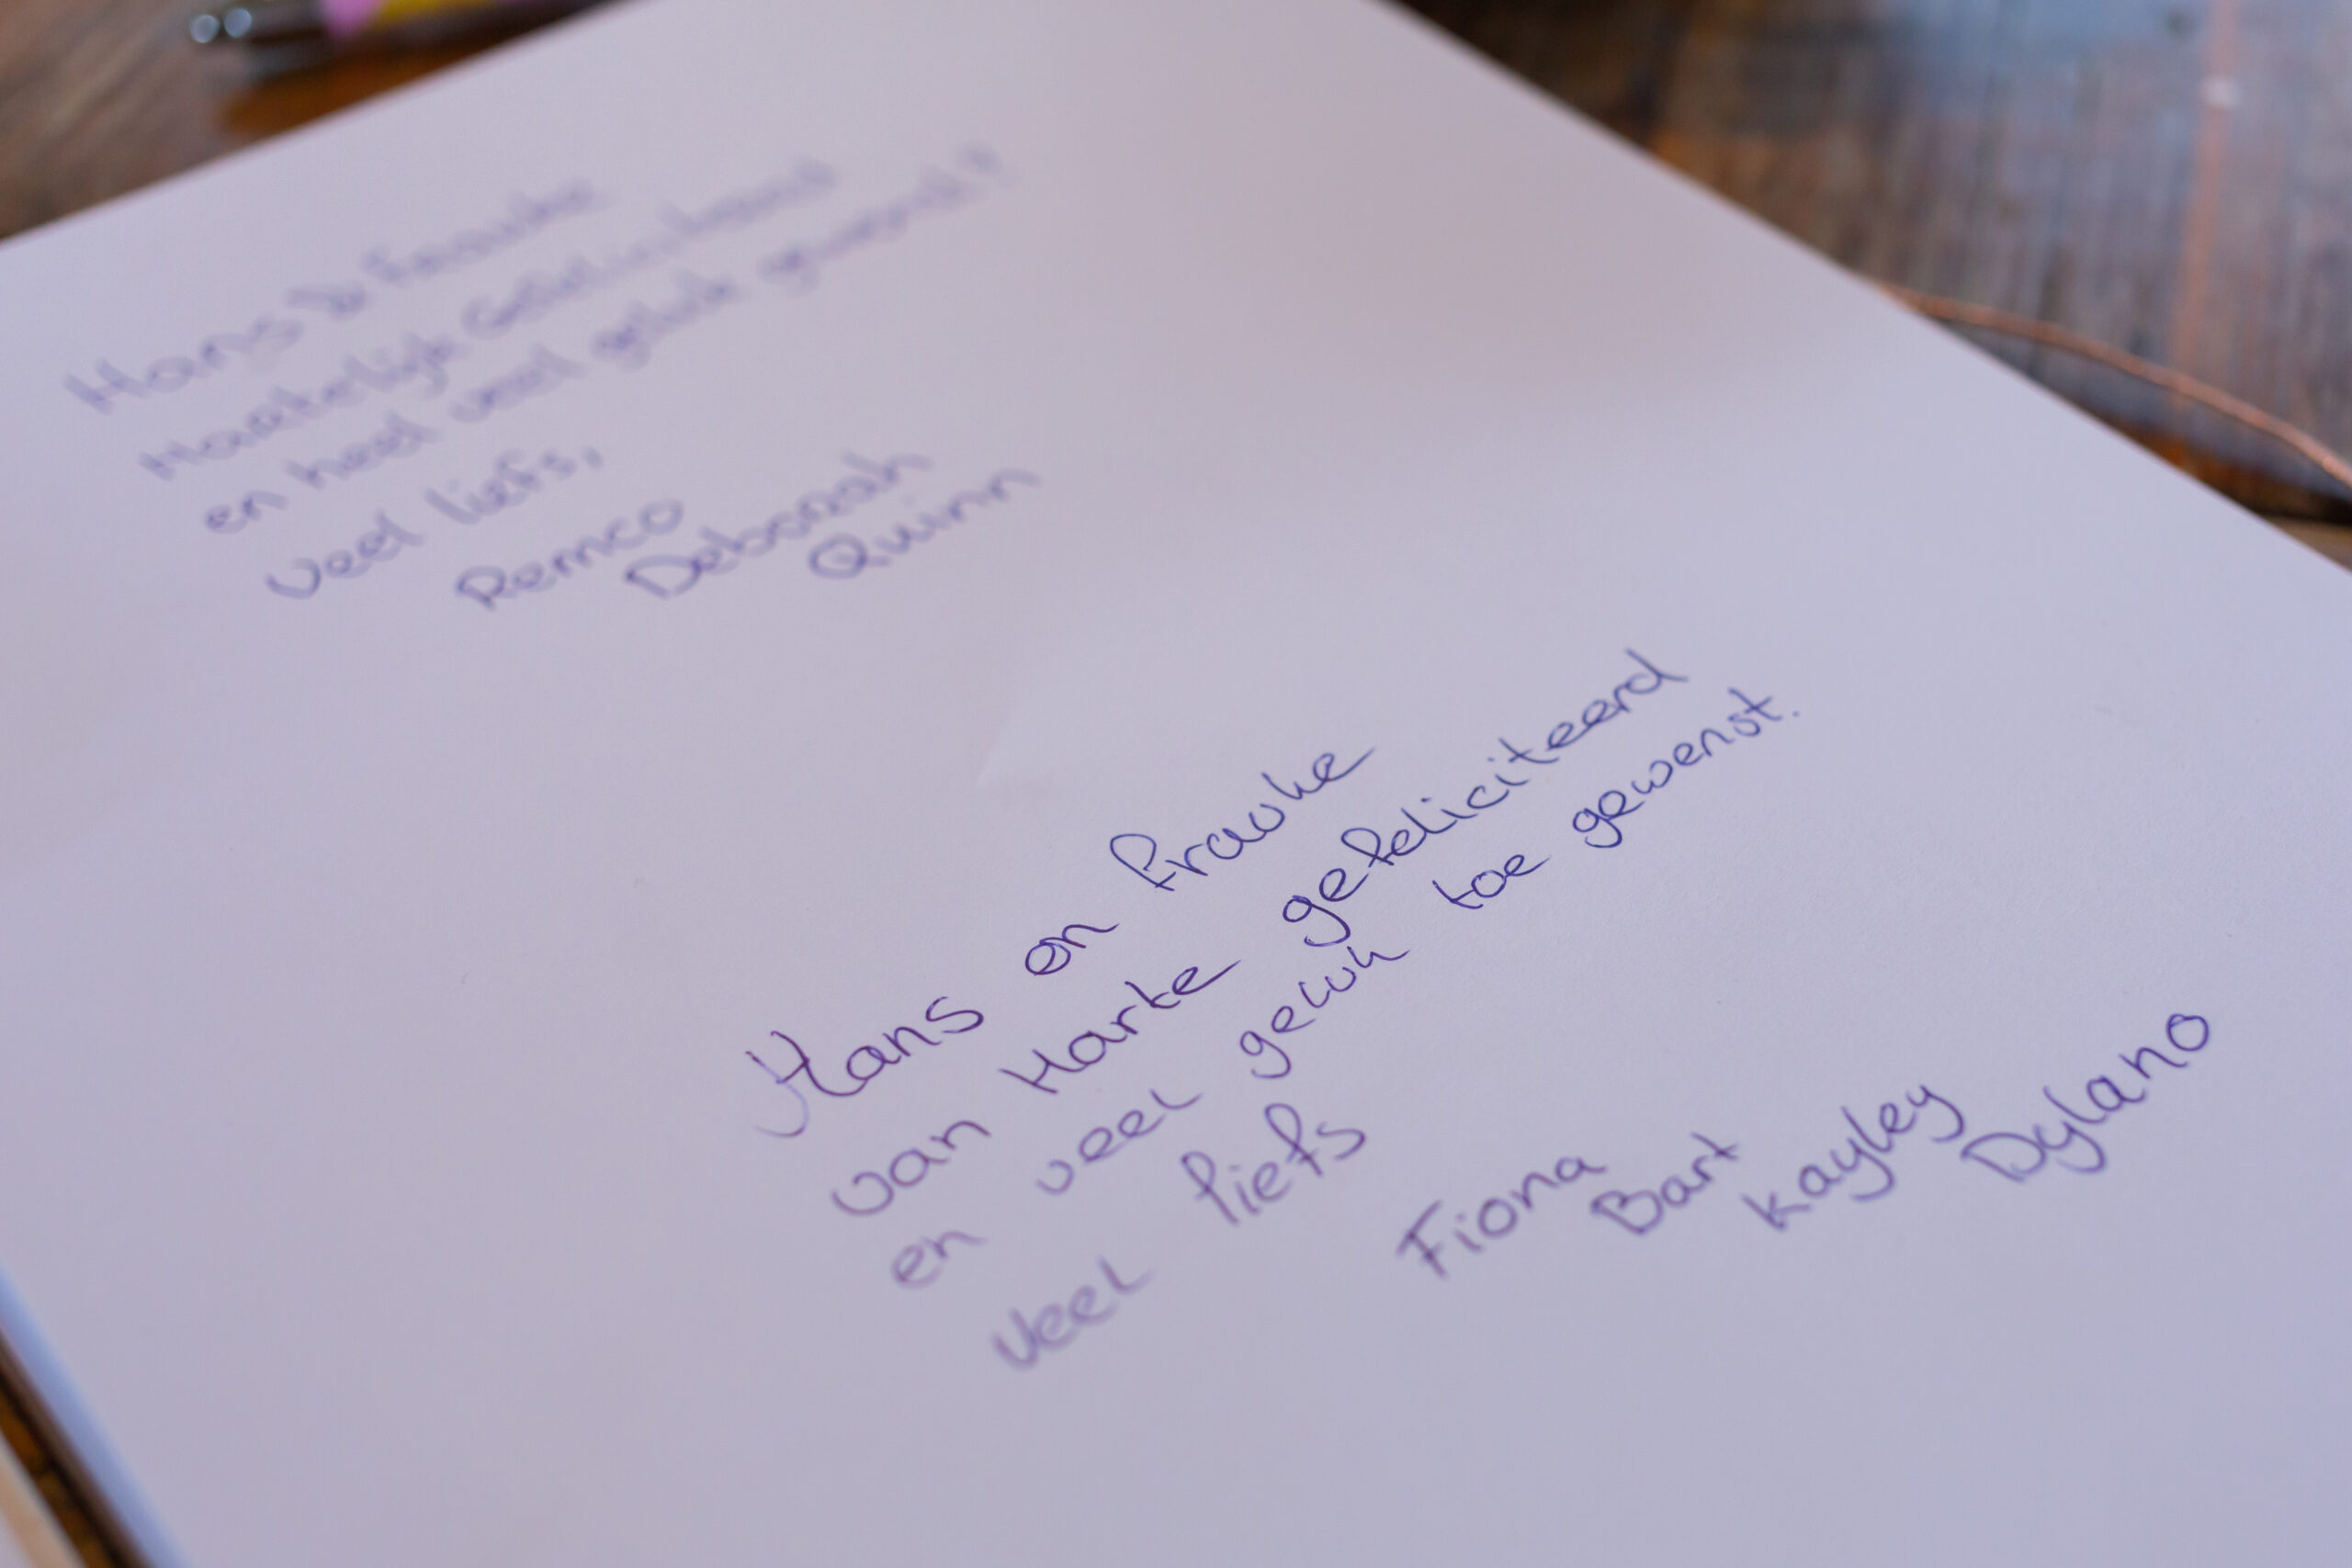 Hans & Frauke
Hartelijk Gefeliciteerd
en heel veel geluk gewenst!
Veel liefs,
Remco
Deborah
Quinn
Hans en Frauke
van Harte gefeliciteerd
en veel geluk toe gewenst.
Veel liefs
Fiona
Bart
Kayley
Dylano